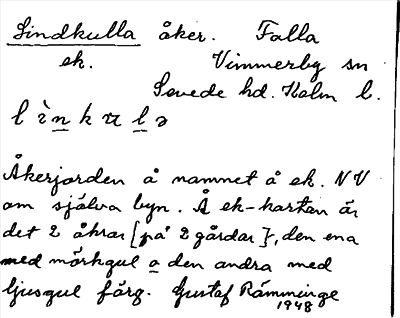 Lindkulla åker. Falla
ek. Vimmerby sn
Sevede hd. Kalm l.
l ì n k ɯ l ə
Åkerjorden å namnet å ek. NV
om själva byn. Å ek-kartan är
det 2 åkrar [på 2 gårdar], den ena
med mörkgul o den andra med
ljusgul färg. Gustaf Rämminge
1948